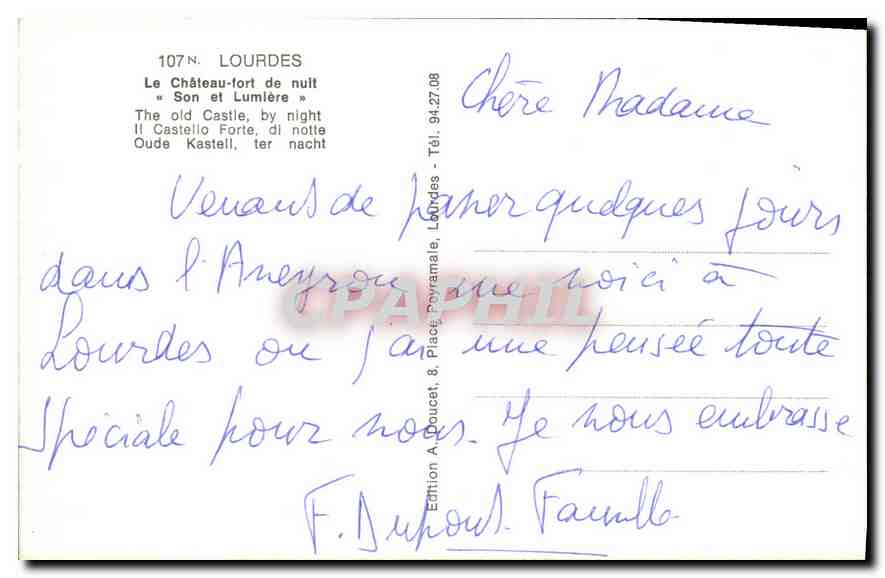 107 N. LOURDES
Le Château-fort de nuit
« Son et Lumière »
The old Castle, by night
Il Castello Forte, di notte
Oude Kastell, ter nacht
Edition A. Doucet, 8, Place Peyramale, Lourdes - Tél. 94.27.08
Chère Madame
Venant de passer quelques jours
dans l'Aveyron me voici à
Lourdes ou j'ai une pensée toute
spéciale pour vous. Je vous embrasse
F. Dupont
CPAPHIL